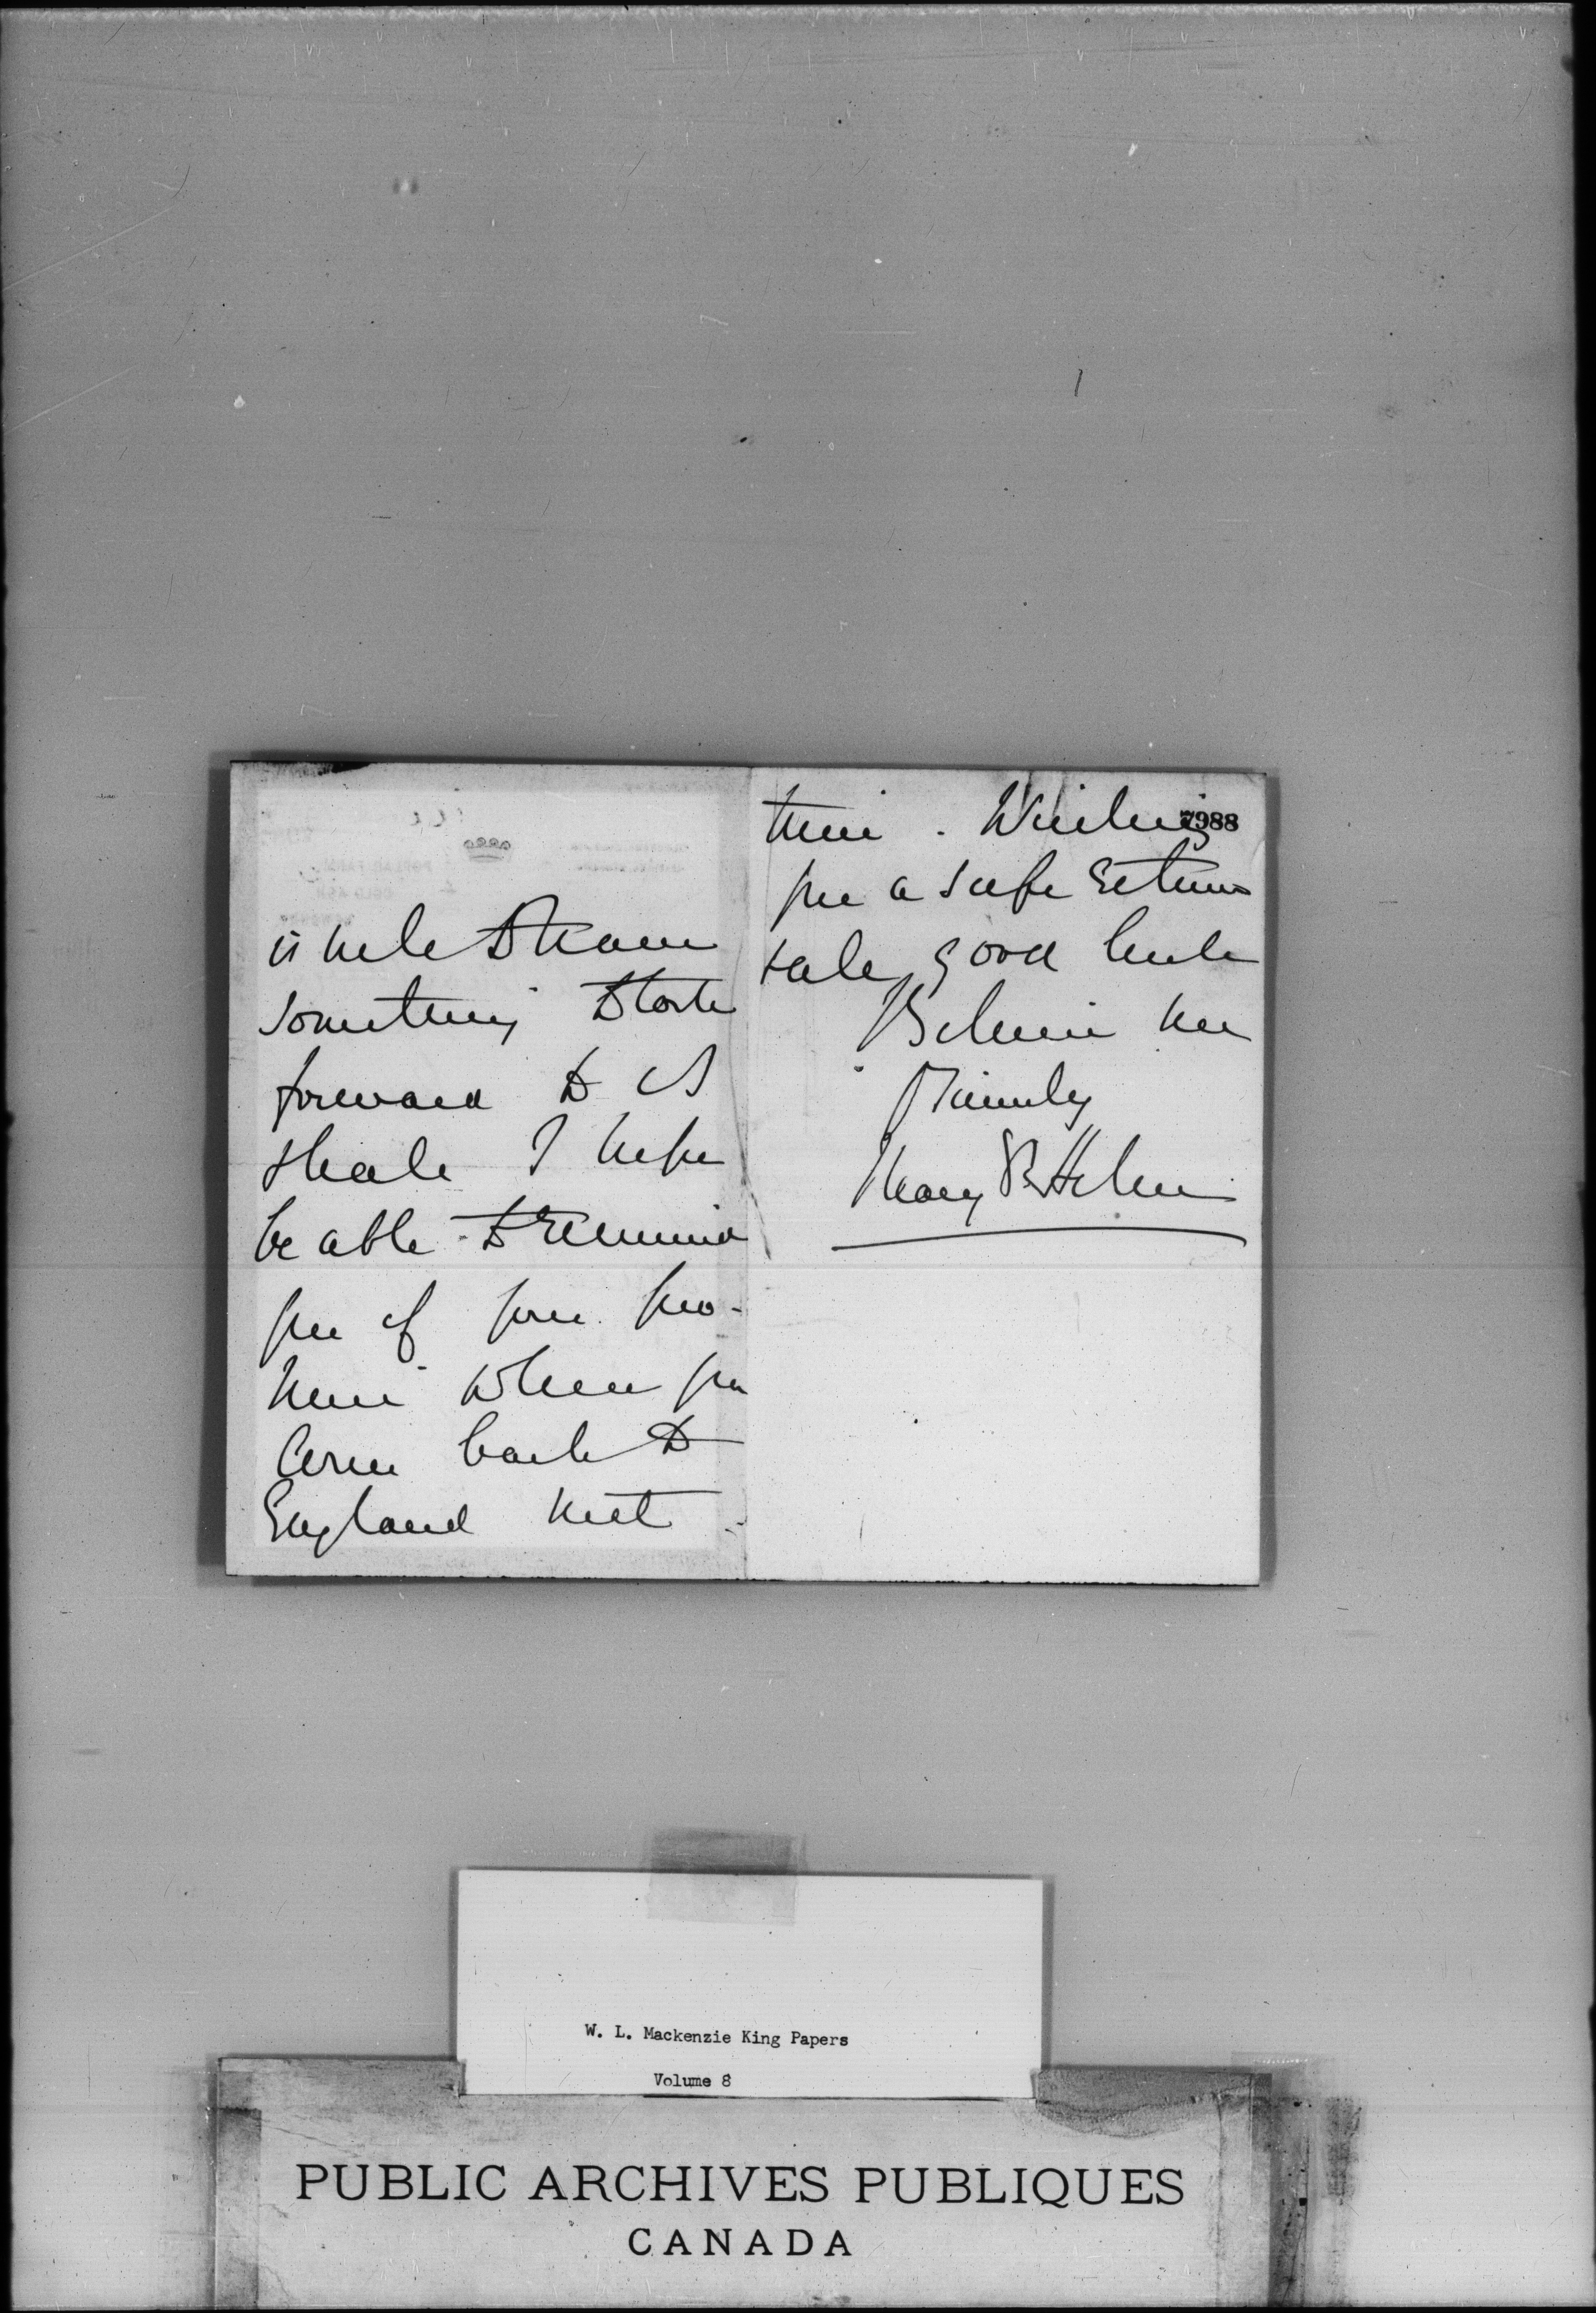 is nice to have
something to look
forward to &
shall I hope
be able to remind
you of your pro-
mise when you
come back to
England next
time. Wishing
7988
you a safe return
& all good luck
Believe me
Sincerely
Mary
W. L. Mackenzie King Papers
Volume 8
PUBLIC ARCHIVES PUBLIQUES
CANADA